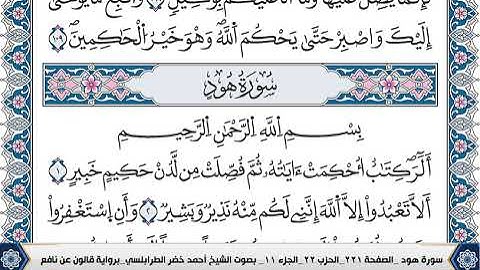 إِلَيْكَ وَاصْبِرْ حَتَّىٰ يَحْكُمَ اَللَّهُ وَهُوَ خَيْرُ الْحَاكِمِينَ ١٠٩
سُورَةُ هُودٍ
بِسْمِ اللَّهِ الرَّحْمَٰنِ الرَّحِيمِ
أَلَٓر كِتَٰبٌ اُحْكِمَتْ ءَايَٰتُهُۥ ثُمَّ فُصِّلَتْ مِن لَّدُنْ حَكِيمٍ خَبِيرٍ ١
أَلَّا تَعْبُدُوٓاْ إِلَّا اَللَّهَ إِنَّنِے لَكُم مِّنْهُ نَذِيرٌ وَبَشِيرٌ ٢ وَأَنِ اِسْتَغْفِرُواْ
سورة هود _الصفحة ٢٢١_الحزب ٢٢_الجزء ١١_ بصوت الشيخ أحمد خضر الطرابلسي_برواية قالون عن نافع